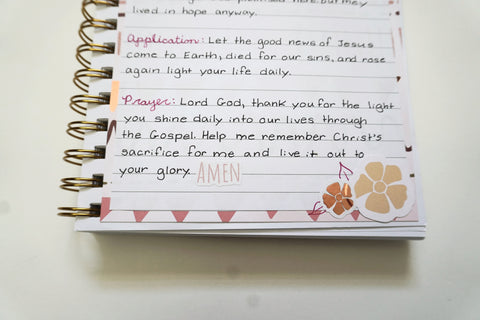 but they
lived in hope anyway.
Application: Let the good news of Jesus
come to Earth, died for our sins, and rose
again light your life daily.
Prayer: Lord God, thank you for the light
you shine daily into our lives through
the Gospel. Help me remember Christ's
sacrifice for me and live it out to
your glory AMEN